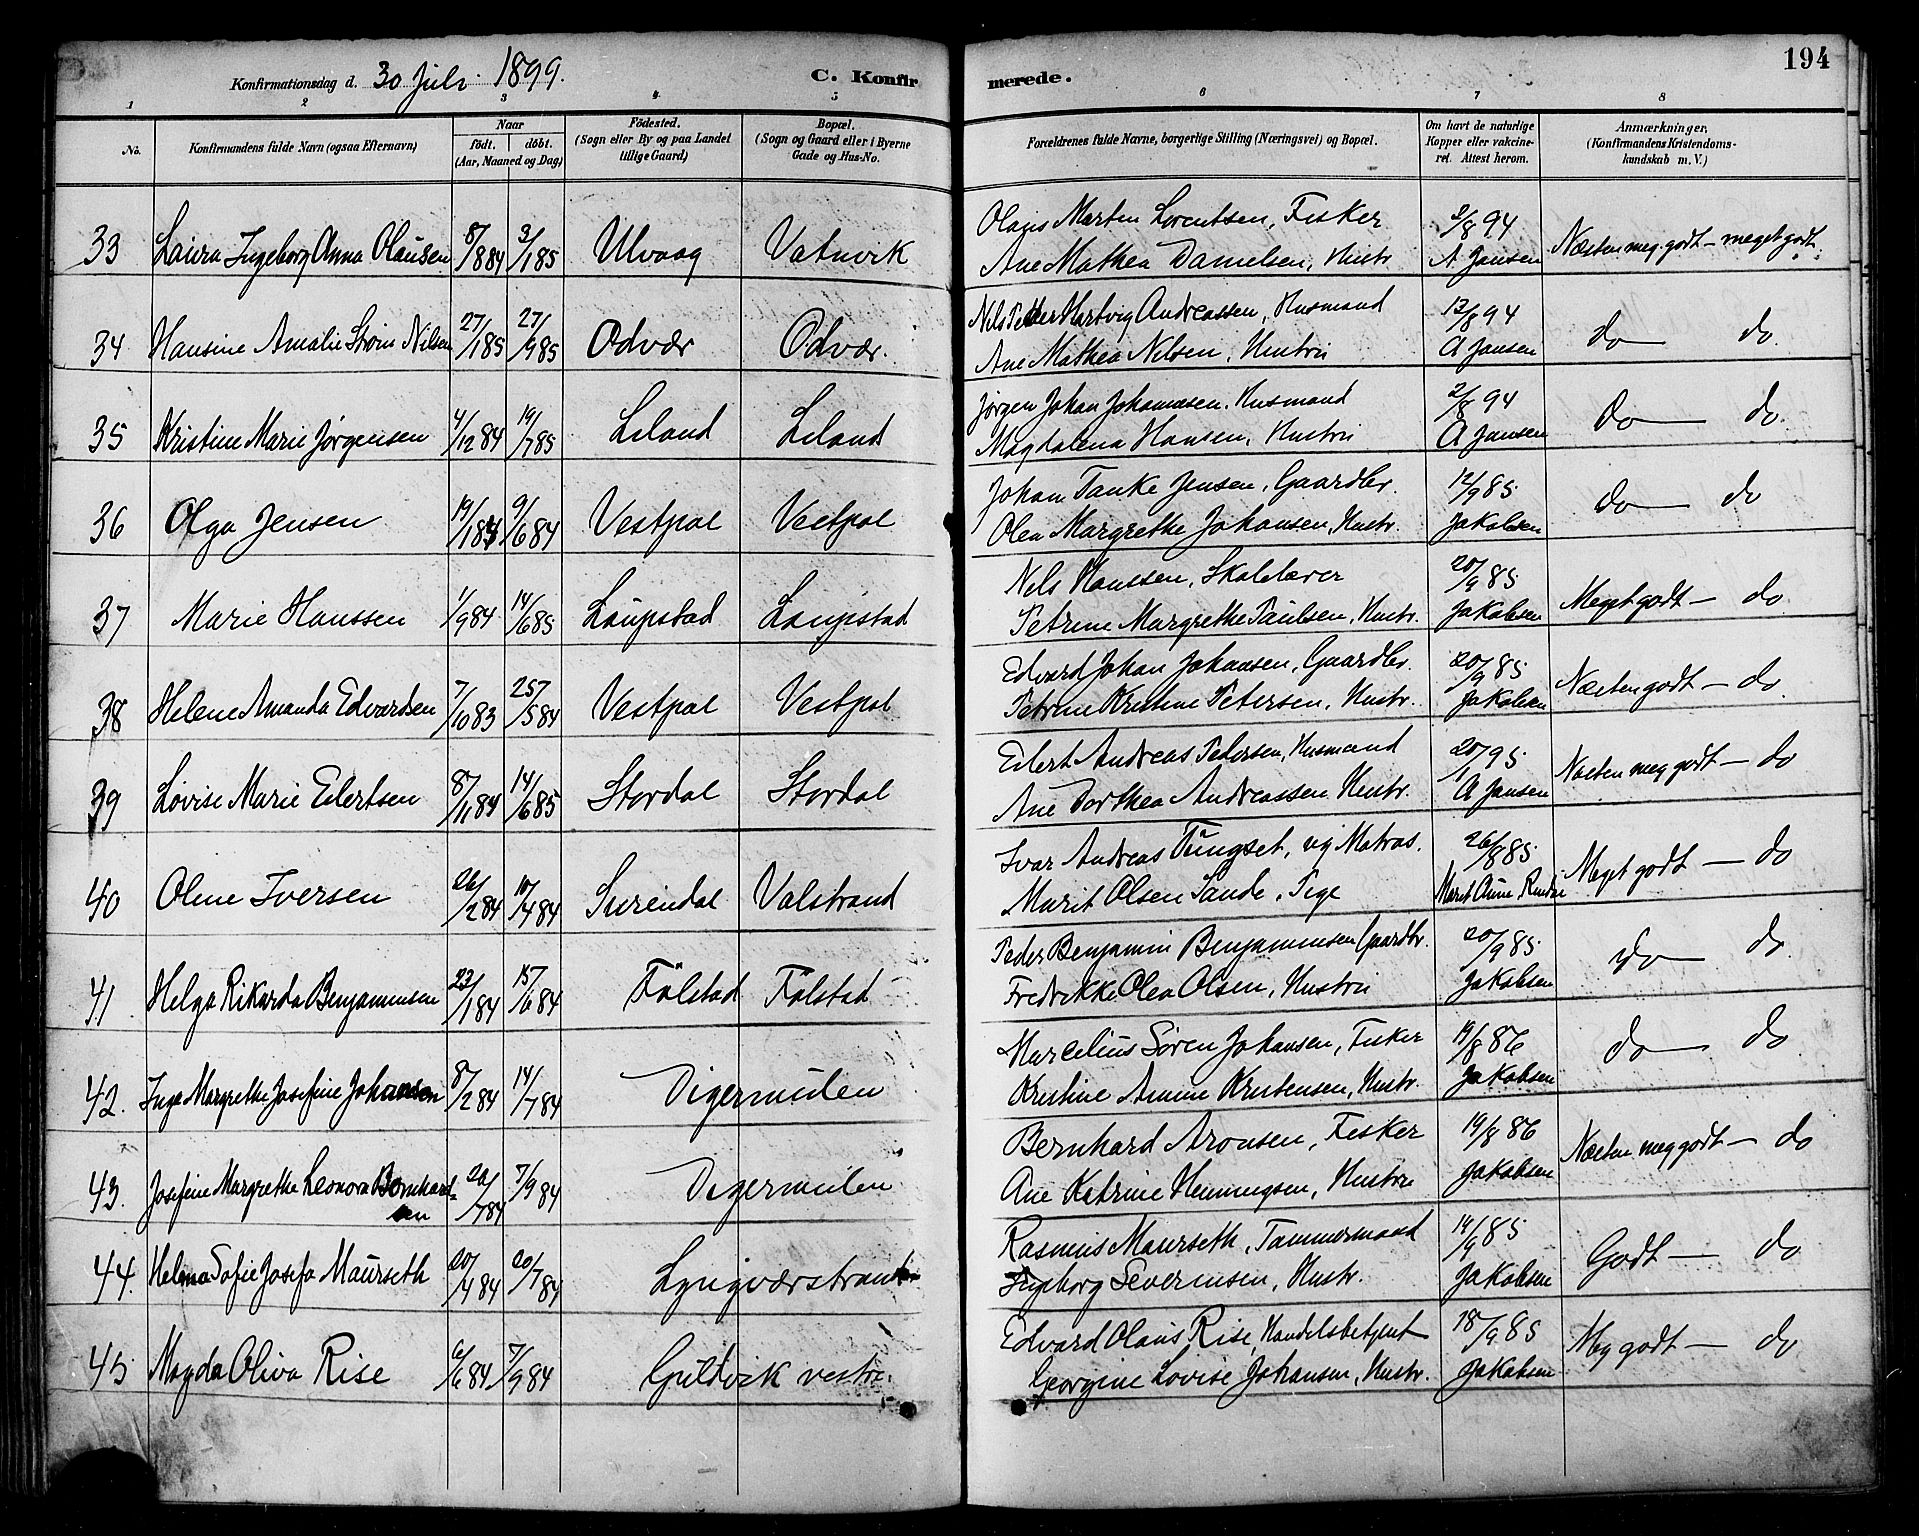 194
Konfirmationsdag d. 30 Juli 1899. C. Konfirmerede.
1 2 3 4 5 6 7 8
No. Konfirmandens fulde Navn (ogsaa Efternavn) Naar født. døbt. (Aar, Maaned og Dag) Fødested. (Sogn eller By og paa Landet tillige Gaard) Bopæl. (Sogn og Gaard eller i Byerne Gade og Hus-No. Forældrenes fulde Navne, borgerlige Stilling (Næringsvei) og Bopæl. Om havt de naturlige Kopper eller vakcineret. Attest herom. Anmærkninger, (Konfirmandens Kristendomskundskab m. V.)
33 Laura Ingeborg Anna Olausen 8/8 84 3/1 85 Ulvaag Vatnvik Olaus Marten Lorentsen, Fisker 2/8 94 Næsten meg. godt — meget godt.
Ane Mathea Danielsen, Hustr. A Jansen
34 Hansine Amalie Strøm Nilsen 27/1 85 27/9 85 Odvær Odvær. Nils Peder Hartvig Andreassen, Husmand 12/8 94 do — do.
Ane Mathea Nilsen, Hustru A Jansen
35 Kristine Marie Jørgensen 4/12 84 19/7 85 Liland Liland Jørgen Johan Johannesen. Husmand 2/8 94 do — do.
Magdalena Hansen, Hustru A Jansen
36 Olga Jensen 19/1 84 9/6 84 Vestpol Vestpol Johan Tanke Jensen, Gaardbr. 12/9 85 do — do
Olea Margrethe Johansen, Hustr. Jakobsen
37 Marie Hanssen 1/9 84 14/6 85 Laupstad Laupstad Nils Hanssen, Skolelærer 20/9 85 Meget godt — do
Petrine Margrethe Paulsen, Hustr. Jakobsen
38 Helene Amanda Edvardsen 7/10 83 25/5 84 Vestpol Vestpol Edvard Johan Johansen, Gaardbr. 20/9 85 Næsten godt — do
Petrine Kristine Petersen, Hustr. Jakobsen
39 Lovise Marie Eilertsen 8/11 84 14/6 85 Stordal Stordal Eilert Andreas Pedersen, Husmand 20/1 95 Næsten meg godt — do
Ane Dorthea Andreassen Hustr. A Jansen
40 Oline Iversen 26/2 84 10/4 84 Surendal Valstrand Ivar Andreas Tungset, ug Matros. 26/8 85 Meget godt — do
Marit Olsen Sande, Pige Marit Anne
41 Helga Rikarda Benjaminsen 23/1 84 15/6 84 Følstad Følstad Peder Benjamin Benjaminsen Gaardbr. 20/9 85 do — do
Fredrikke Olea Olsen, Hustru Jakobsen
42. Inga Margrethe Josefine Johansen 8/2 84 14/7 84 Digermulen Marcelius Søren Johansen, Fisker 19/8 86 do — do
Kristine Amine Kristensen, Hustr. Jakobsen
43. Josefine Margrethe Leonora Bernhard- 20/7 84 7/9 84 Digermulen Bernhard Aronsen, Fisker 19/8 86 Næsten meg godt — do
sen Ane Katrine Henningsen, Hustru Jakobsen
44. Helma Sofie Josefa Maurseth 20/4 84 20/7 84 Lyngværstranden Rasmus Maurseth, Tømmermand 14/9 85 Godt — do
Ingeborg Severinsen, Hustr. Jakobsen
45 Magda Oliva Rise 6/6 84 7/9 84 Guldvik vestre. Edvard Olaus Rise, Handelsbetjent 18/9 85 Meg godt — do
Georgine Lovise Johansen, Hustr. Jakobsen